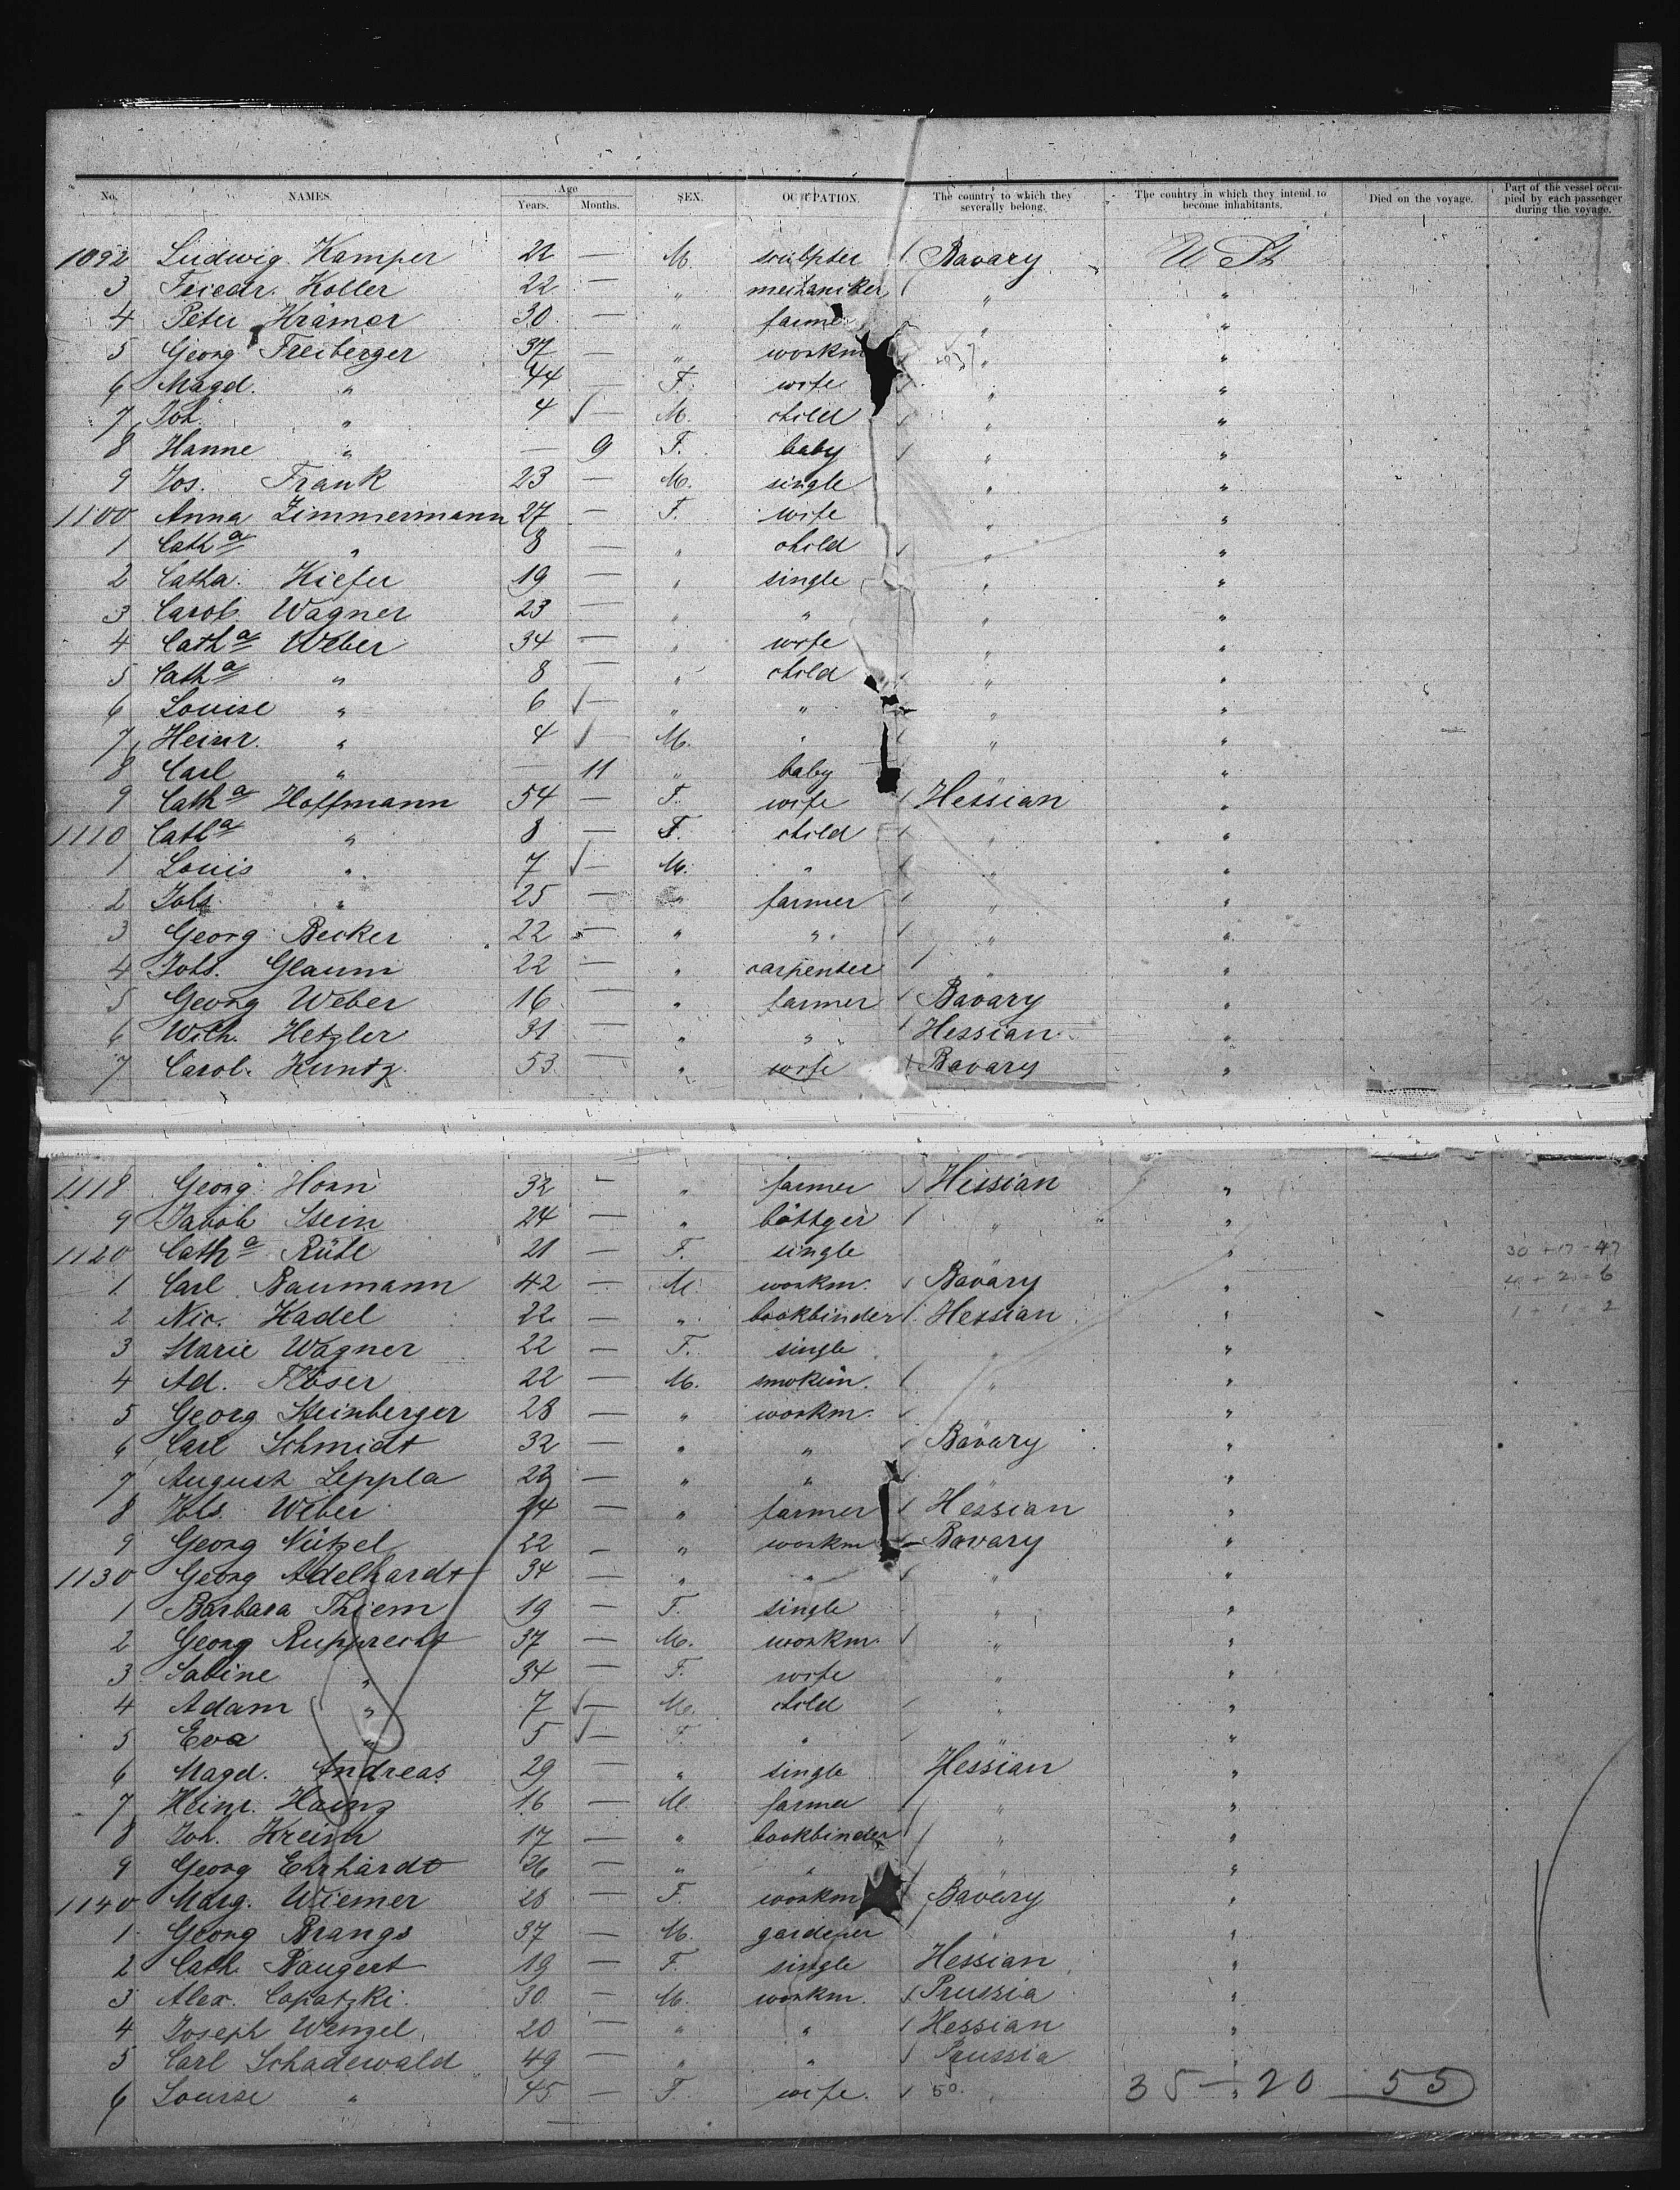 No. NAMES. Age Years. Months. SEX. OCCUPATION. The country to which they severally belong. The country in which they intend to become inhabitants. Died on the voyage. Part of the vessel occupied by each passenger during the voyage.
1092 Ludwig Kamper 21 — M. sculpter Bavary U St
3 Friedr. Koller 22 — " mechaniker " "
4 Peter Krämer 30 — " farmer " "
5 Georg Freiberger 37 — " workm " "
6 Magd. " 44 — F. wife " "
7 Joh. " 4 — M. child " "
8 Hanne " — 9 F. baby " "
9 Jos. Frank 23 — M. single " "
1100 Anna Zimmermann 27 — F. wife " "
1 Catha " 8 — " child " "
2 Catha. Kiefer 19 — " single " "
3 Carol. Wagner 23 — " " " "
4 Catha Weber 34 — " wife " "
5 Catha " 8 — " child " "
6 Louise " 6 — " " " "
7 Heinr. " 4 — M. " " "
8 Carl " — 11 " baby "
9 Catha Hoffmann 54 — F. wife Hessian "
1110 Catha " 8 — F. child " "
1 Louis " 7 — M. " " "
2 Johs. " 25 — " farmer " "
3 Georg Becker 22 — " " " "
4 Johs. Glaum 22 — " carpenter " "
5 Georg Weber 16 — " farmer Bavary "
6 Wilh. Hetzler 31 — " " Hessian "
7 Carol. Kuntz 53 — " wife Bavary "
1118 Georg Horn 32 — " farmer Hessian "
9 Jakob Stein 24 — " böttger " "
1120 Catha Rühl 21 — F. single "
30 + 17 - 47
1 Carl Baumann 42 — M. workm. Bavary "
4 + 2 - 6
2 Nic. Kadel 22 — " bookbinder Hessian "
1 + 1 - 2
3 Marie Wagner 22 — F. single "
4 Ad. 22 — M. " "
5 Georg Steinberger 28 — " workm. "
6 Carl Schmidt 32 — " " Bavary "
7 August Leppla 23 — " " "
8 Johs. Weber 24 — " farmer Hessian "
9 Georg Nützel 22 — " workm Bavary "
1130 Georg Adelhardt 34 — " " " "
1 Barbara Thiem 19 — F. single " "
2 Georg Rupprecht 37 — M. workm. " "
3 Sabine " 34 — F. wife " "
4 Adam " 7 — M. child " "
5 Eva " 5 — F. " " "
6 Magd. Andreas 29 — " single Hessian "
7 Heinr. Hainz 16 — M. farmer " "
8 Joh. Kreim 17 — " bookbinder " "
9 Georg Ehrhardt 26 — " " "
1140 Marg. Wiemer 28 — F. workm Bavary "
1 Georg Brangs 37 — M. gardener "
2 Cath. Baugert 19 — F. single Hessian "
3 Alex. Copatzki 30 — M. workm. Prussia "
4 Joseph Wenzel 20 — " " Hessian "
5 Carl Schadewald 49 — " " Prussia "
6 Lourse " 45 — F. wife. 50. " 35 — 20 55